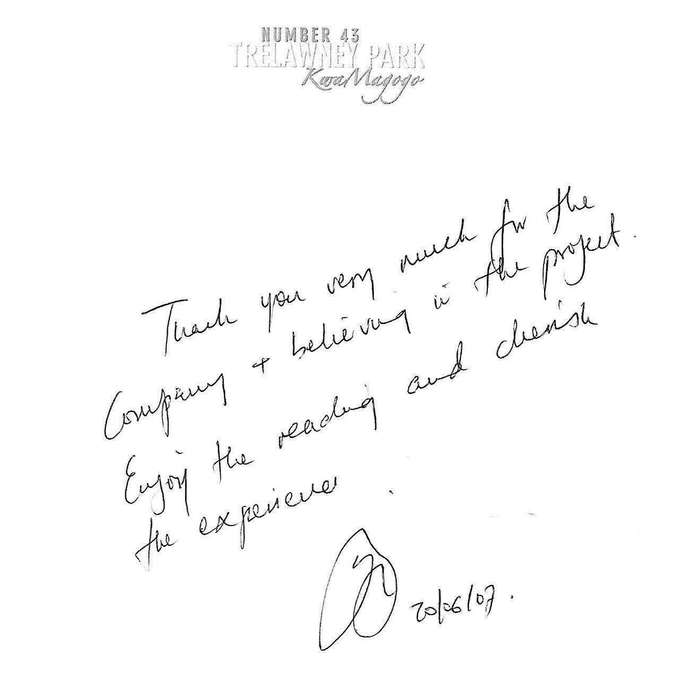 NUMBER 43
TRELAWNEY PARK
KwaMagogo
Thank you very much for the
Company + believing in the project.
Enjoy the reading and cherish
the experience.
20/06/07.